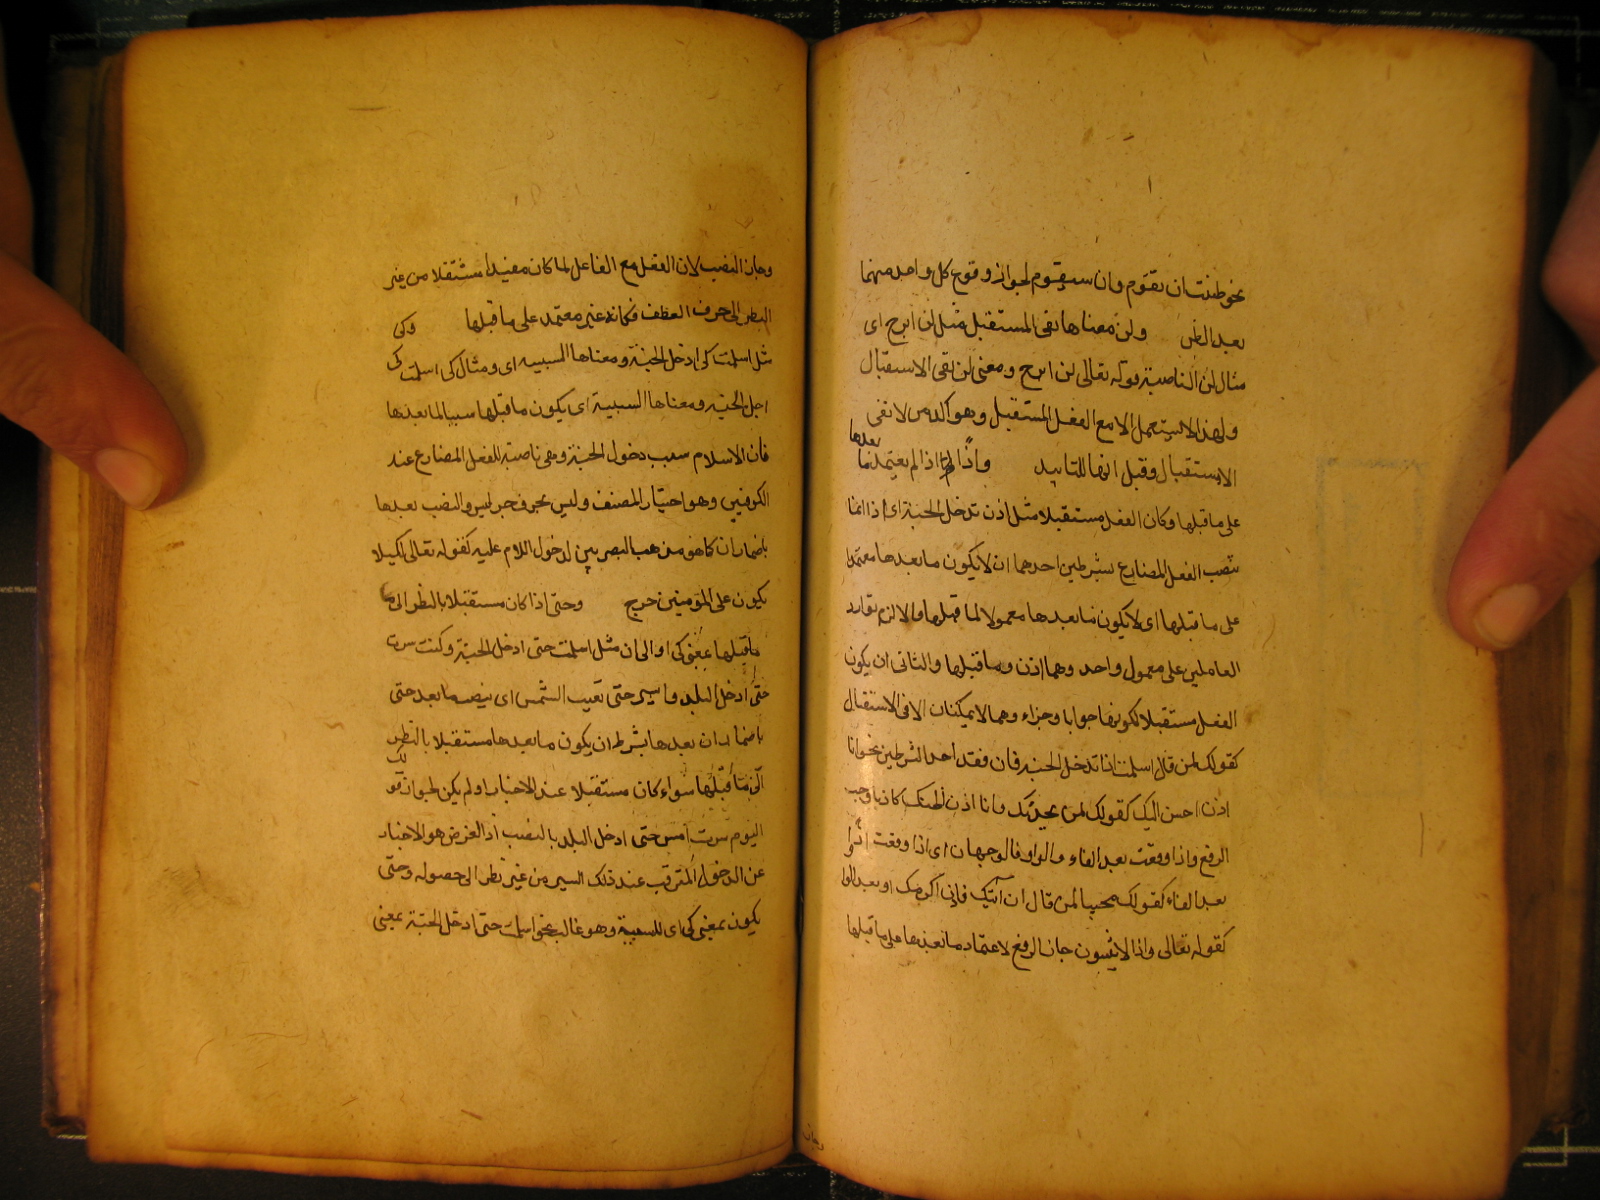 نحو ظننت ان تقوم وان ستقوم لجواز وقوع كل واحد منهما
بعد الظن ولن معناها نفى المستقبل مثل لن ابرح اى
مثال لن الناصبة قوله تعالى لن ابرح ومعنى لن نفى الاستقبال
ولهذا لا يستعمل الا مع الفعل المستقبل وهو اكد من لا نفى
الاستقبال وقيل انها للتابيد واذًا اذا لم يعتمد ما بعدها
على ما قبلها وكان الفعل مستقبلا مثل اذن تدخل الجنة اى اذا انما
تنصب الفعل المضارع بشرطين احدهما ان لا يكون ما بعدها معتمدا
على ما قبلها اى لا يكون ما بعدها معمولا لما قبلها والا لزم توارد
العاملين على معمول واحد وهما اذن وما قبلها والثانى ان يكون
الفعل مستقبلا لكونها جوابا وجزاء وهما لا يمكنان الا فى الاستقبال
كقولك لمن قال اسلمت اذا تدخل الجنة فان فقد احد الشرطين نحو انا
اذن احسن اليك كقولك لمن يحدثك وانا اذن اظنك كاذبا وجب
الرفع واذا وقعت بعد الفاء والواو فالوجهان اى اذا وقعت اذًا
بعد الفاء كقولك مجيبا لمن قال ان آتيك فاذن اكرمك او بعد الواو
كقوله تعالى واذا لا يلبثون جاز الرفع لاعتماد ما بعدها على ما قبلها
وجاز
وجاز النصب لان الفعل مع الفاعل لما كان مفيدا مستقلا من غير
النظر الى حرف العطف فكانه غير معتمد على ما قبلها وكى
مثل اسلمت كى ادخل الجنة ومعناها السببية اى ومثال كى اسلمت كى
ادخل الجنة ومعناها السببية اى يكون ما قبلها سببا لما بعدها
فان الاسلام سبب دخول الجنة وهى ناصبة للفعل المضارع عند
الكوفيين وهو اختيار المصنف وليس بحرف جر ليس والنصب بعدها
باضمار ان كما هو مذهب البصريين لدخول اللام عليه كقوله تعالى لكيلا
يكون على المؤمنين حرج وحتى اذا كان مستقبلا بالنظر الى ما
ما قبلها بمعنى كى او الى ان مثل اسلمت حتى ادخل الجنة وكنت سرت
حتى ادخل البلد واسير حتى تغيب الشمس اى ينصب ما بعد حتى
باضمار ان بعدها بشرط ان يكون ما بعدها مستقبلا بالنظر
الى ما قبلها سواء كان مستقبلا عند الاخبار او لم يكن لجواز قولك
اليوم سرت امس حتى ادخل البلد بالنصب اذ الغرض هو الاخبار
عن الدخول المترقب عند ذلك السير من غير نظر الى حصوله وحتى
يكون بمعنى كى اى للسببية وهو غالب نحو اسلمت حتى ادخل الجنة بمعنى